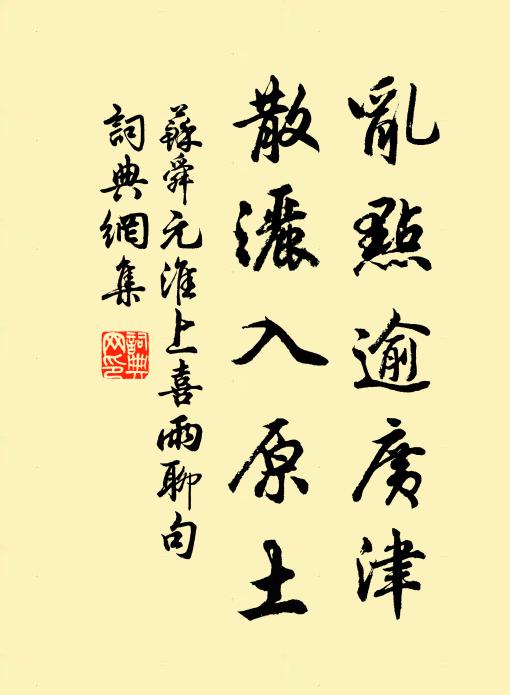 亂點逾廣津
散灑入原土
蘇舜元淮上喜雨聊句
詞典網集
詞典網印